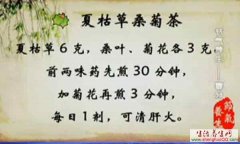 夏枯草桑菊茶
夏枯草6克，桑叶、菊花各3克
前两味药先煎30分钟，
加菊花再煎3分钟，
每日1剂，可清肝火。
节气养生
生活养生网